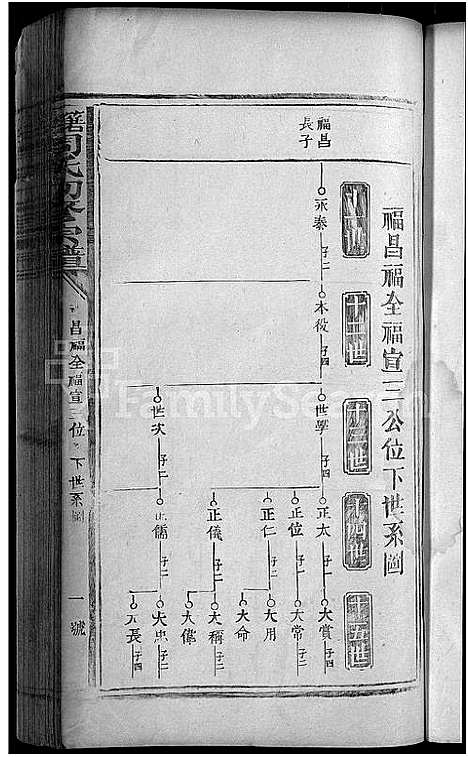 福昌福全福宣三公位下世系圖
十二世
十三世
十四世
十五世
福昌
長子
永泰 子二
本役 子四
世學 子四
世次 子二
正太 子二
正位 子一
正仁 子二
正儀 子二
正儒 子二
大賞 子四
大常 子二
大用
大命
大稱 子二
大偉
大忠 子二
長 子四
周氏初修宗譜
昌福全福宣三位下世系圖
一號
FamilySearch